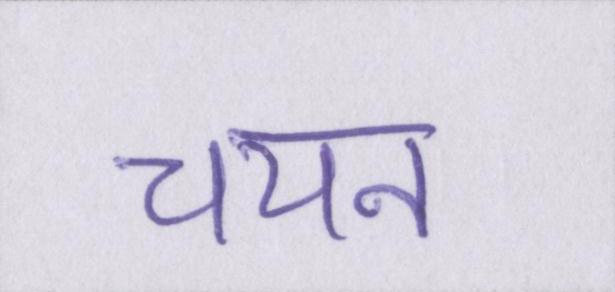 चयन